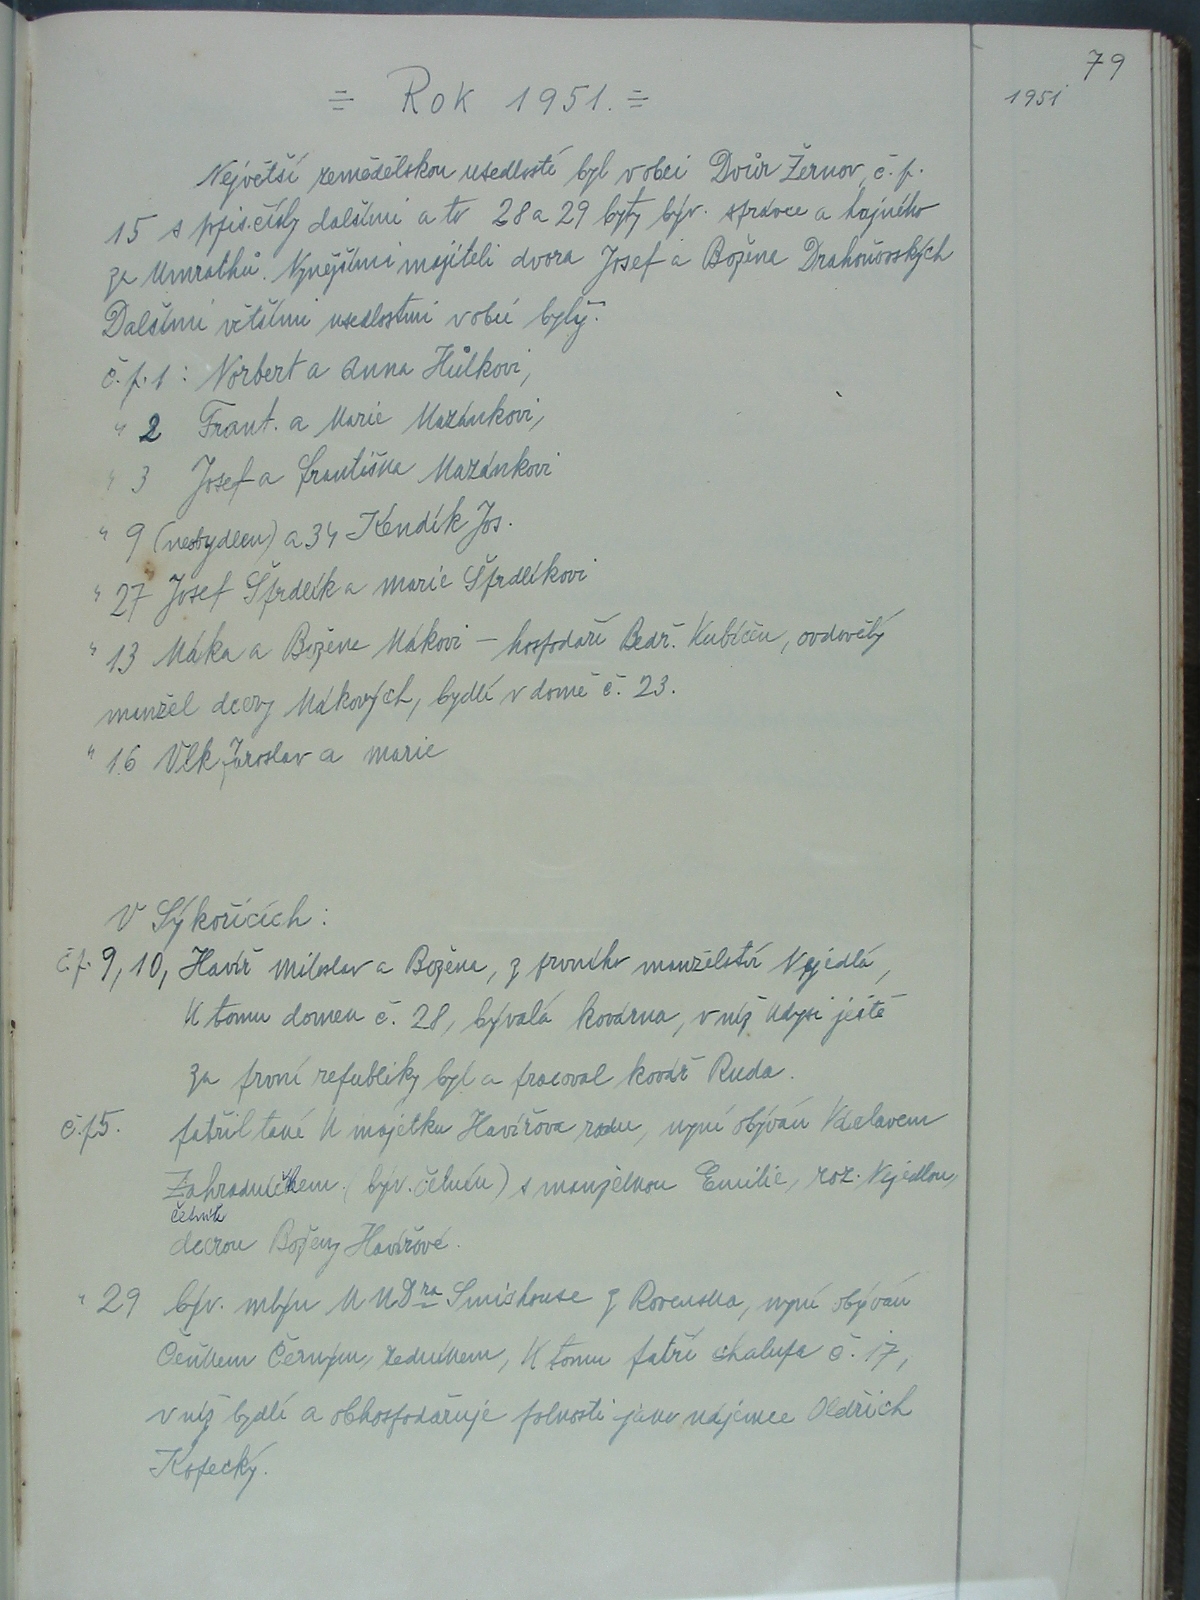 79
1951
= Rok 1951. =
Největší zemědělskou usedlostí byl v obci Dvůr Žernov, č. p.
15 s popis. čísly dalšími a to 28 a 29 byty býv. správce a hajného
za Umrathů. Nynějšími majiteli dvora Josef a Božena Drahoňovských
Dalšími většími usedlostmi v obci byly:
č. p. 1 : Norbert a Anna Hůlkovi,
" 2 Frant. a Marie Mazánkovi,
" 3 Josef a Františka Mazánkovi
" 9 (neobydlen) a 34 Kendík Jos.
" 27 Josef Šfrdlík a Marie Šfrdlíkovi
" 13 Máka a Božena Mákovi – hospodaří Bedř. Kubíček, ovdovělý
manžel dcery Mákových, bydlí v domě č. 23.
" 16 Vlk Jaroslav a Marie
V Sýkořicích :
č. p. 9, 10, Havíř Miloslav a Božena, z prvního manželství Nejedlá,
K tomu domek č. 28, bývalá kovárna, v níž kdysi ještě
za první republiky byl a pracoval kovář Ruda.
č. p. 5. patřil také k majetku Havířova rodu, nyní obýván Václavem
Zahradníčkem (býv. četník) s manželkou Emilie, roz. Nejedlou,
četník
dcerou Boženy Havířové.
" 29 býv. mlýn MUDra Smishouse z Rovenska, nyní obýván
Čeňkem Černým, zedníkem, K tomu patří chalupa č. 17,
v níž bydlí a obhospodařuje polnosti jako nájemce Oldřich
Kopecký.